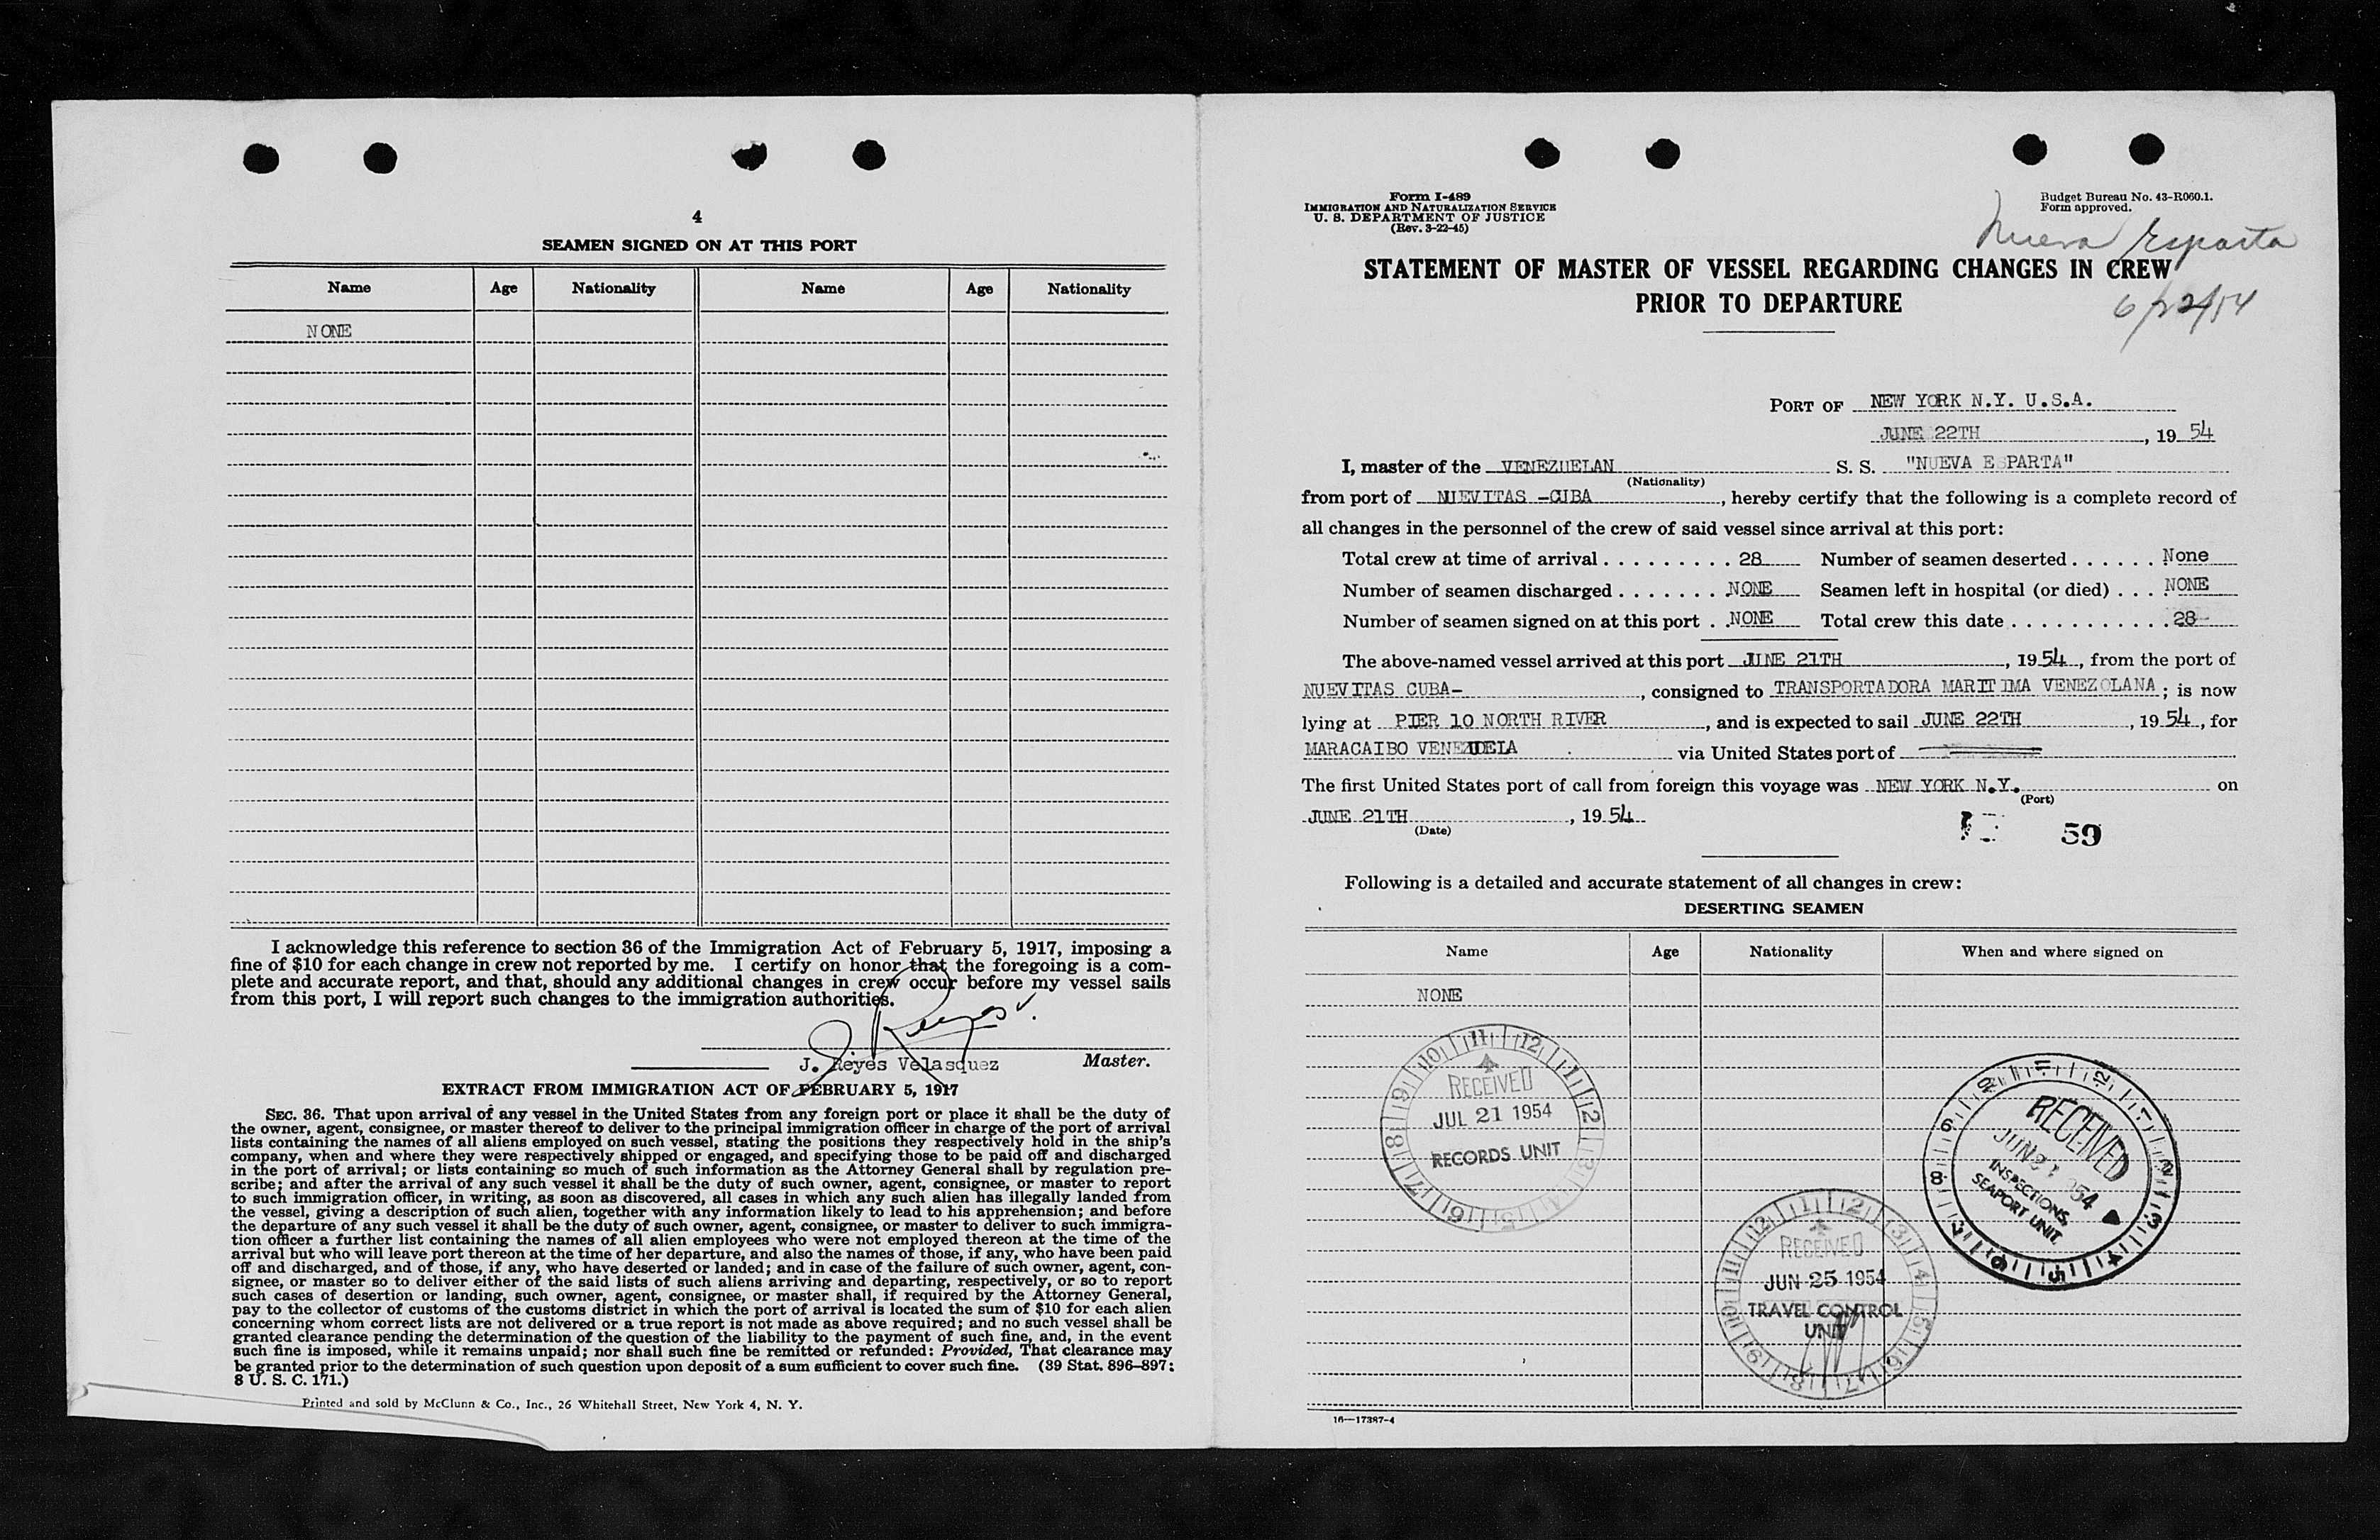 4
SEAMEN SIGNED ON AT THIS PORT
Name Age Nationality Name Age Nationality
NONE
I acknowledge this reference to section 36 of the Immigration Act of February 5, 1917, imposing a
fine of $10 for each change in crew not reported by me. I certify on honor that the foregoing is a com-
plete and accurate report, and that, should any additional changes in crew occur before my vessel sails
from this port, I will report such changes to the immigration authorities.
J. Reyes
J. Reyes Velasquez Master.
EXTRACT FROM IMMIGRATION ACT OF FEBRUARY 5, 1917
SEC. 36. That upon arrival of any vessel in the United States from any foreign port or place it shall be the duty of
the owner, agent, consignee, or master thereof to deliver to the principal immigration officer in charge of the port of arrival
lists containing the names of all aliens employed on such vessel, stating the positions they respectively hold in the ship's
company, when and where they were respectively shipped or engaged, and specifying those to be paid off and discharged
in the port of arrival; or lists containing so much of such information as the Attorney General shall by regulation pre-
scribe; and after the arrival of any such vessel it shall be the duty of such owner, agent, consignee, or master to report
to such immigration officer, in writing, as soon as discovered, all cases in which any such alien has illegally landed from
the vessel, giving a description of such alien, together with any information likely to lead to his apprehension; and before
the departure of any such vessel it shall be the duty of such owner, agent, consignee, or master to deliver to such immigra-
tion officer a further list containing the names of all alien employees who were not employed thereon at the time of the
arrival but who will leave port thereon at the time of her departure, and also the names of those, if any, who have been paid
off and discharged, and of those, if any, who have deserted or landed; and in case of the failure of such owner, agent, con-
signee, or master so to deliver either of the said lists of such aliens arriving and departing, respectively, or so to report
such cases of desertion or landing, such owner, agent, consignee, or master shall, if required by the Attorney General,
pay to the collector of customs of the customs district in which the port of arrival is located the sum of $10 for each alien
concerning whom correct lists are not delivered or a true report is not made as above required; and no such vessel shall be
granted clearance pending the determination of the question of the liability to the payment of such fine, and, in the event
such fine is imposed, while it remains unpaid; nor shall such fine be remitted or refunded: Provided, That clearance may
be granted prior to the determination of such question upon deposit of a sum sufficient to cover such fine. (39 Stat. 896–897;
8 U. S. C. 171.)
Printed and sold by McClunn & Co., Inc., 26 Whitehall Street, New York 4, N. Y.
Form I-489
IMMIGRATION AND NATURALIZATION SERVICE
U. S. DEPARTMENT OF JUSTICE
(Rev. 3-22-45)
Budget Bureau No. 43-R060.1.
Form approved.
Nueva Esparta
STATEMENT OF MASTER OF VESSEL REGARDING CHANGES IN CREW
PRIOR TO DEPARTURE
6/22/54
PORT OF NEW YORK N.Y. U.S.A.
JUNE 22TH, 19 54
I, master of the VENEZUELAN S. S. "NUEVA ESPARTA"
(Nationality)
from port of NUEVITAS -CUBA, hereby certify that the following is a complete record of
all changes in the personnel of the crew of said vessel since arrival at this port:
Total crew at time of arrival . . . . . . . . . 28 Number of seamen deserted . . . . . . None
Number of seamen discharged . . . . . . . NONE Seamen left in hospital (or died) . . . NONE
Number of seamen signed on at this port . . NONE Total crew this date . . . . . . . . . . . 28
The above-named vessel arrived at this port JUNE 21TH, 19 54, from the port of
NUEVITAS CUBA-, consigned to TRANSPORTADORA MARITIMA VENEZOLANA; is now
lying at PIER 10 NORTH RIVER, and is expected to sail JUNE 22TH, 19 54, for
MARACAIBO VENEZUELA via United States port of
The first United States port of call from foreign this voyage was NEW YORK N.Y. on
(Port)
JUNE 21TH, 19 54
(Date)
59
Following is a detailed and accurate statement of all changes in crew:
DESERTING SEAMEN
Name Age Nationality When and where signed on
NONE
RECEIVED
JUL 21 1954
RECORDS UNIT
RECEIVED
JUN 25 1954
TRAVEL CONTROL
UNIT
RECEIVED
INSPECTIONS
SEAPORT UNIT
16—17387-4